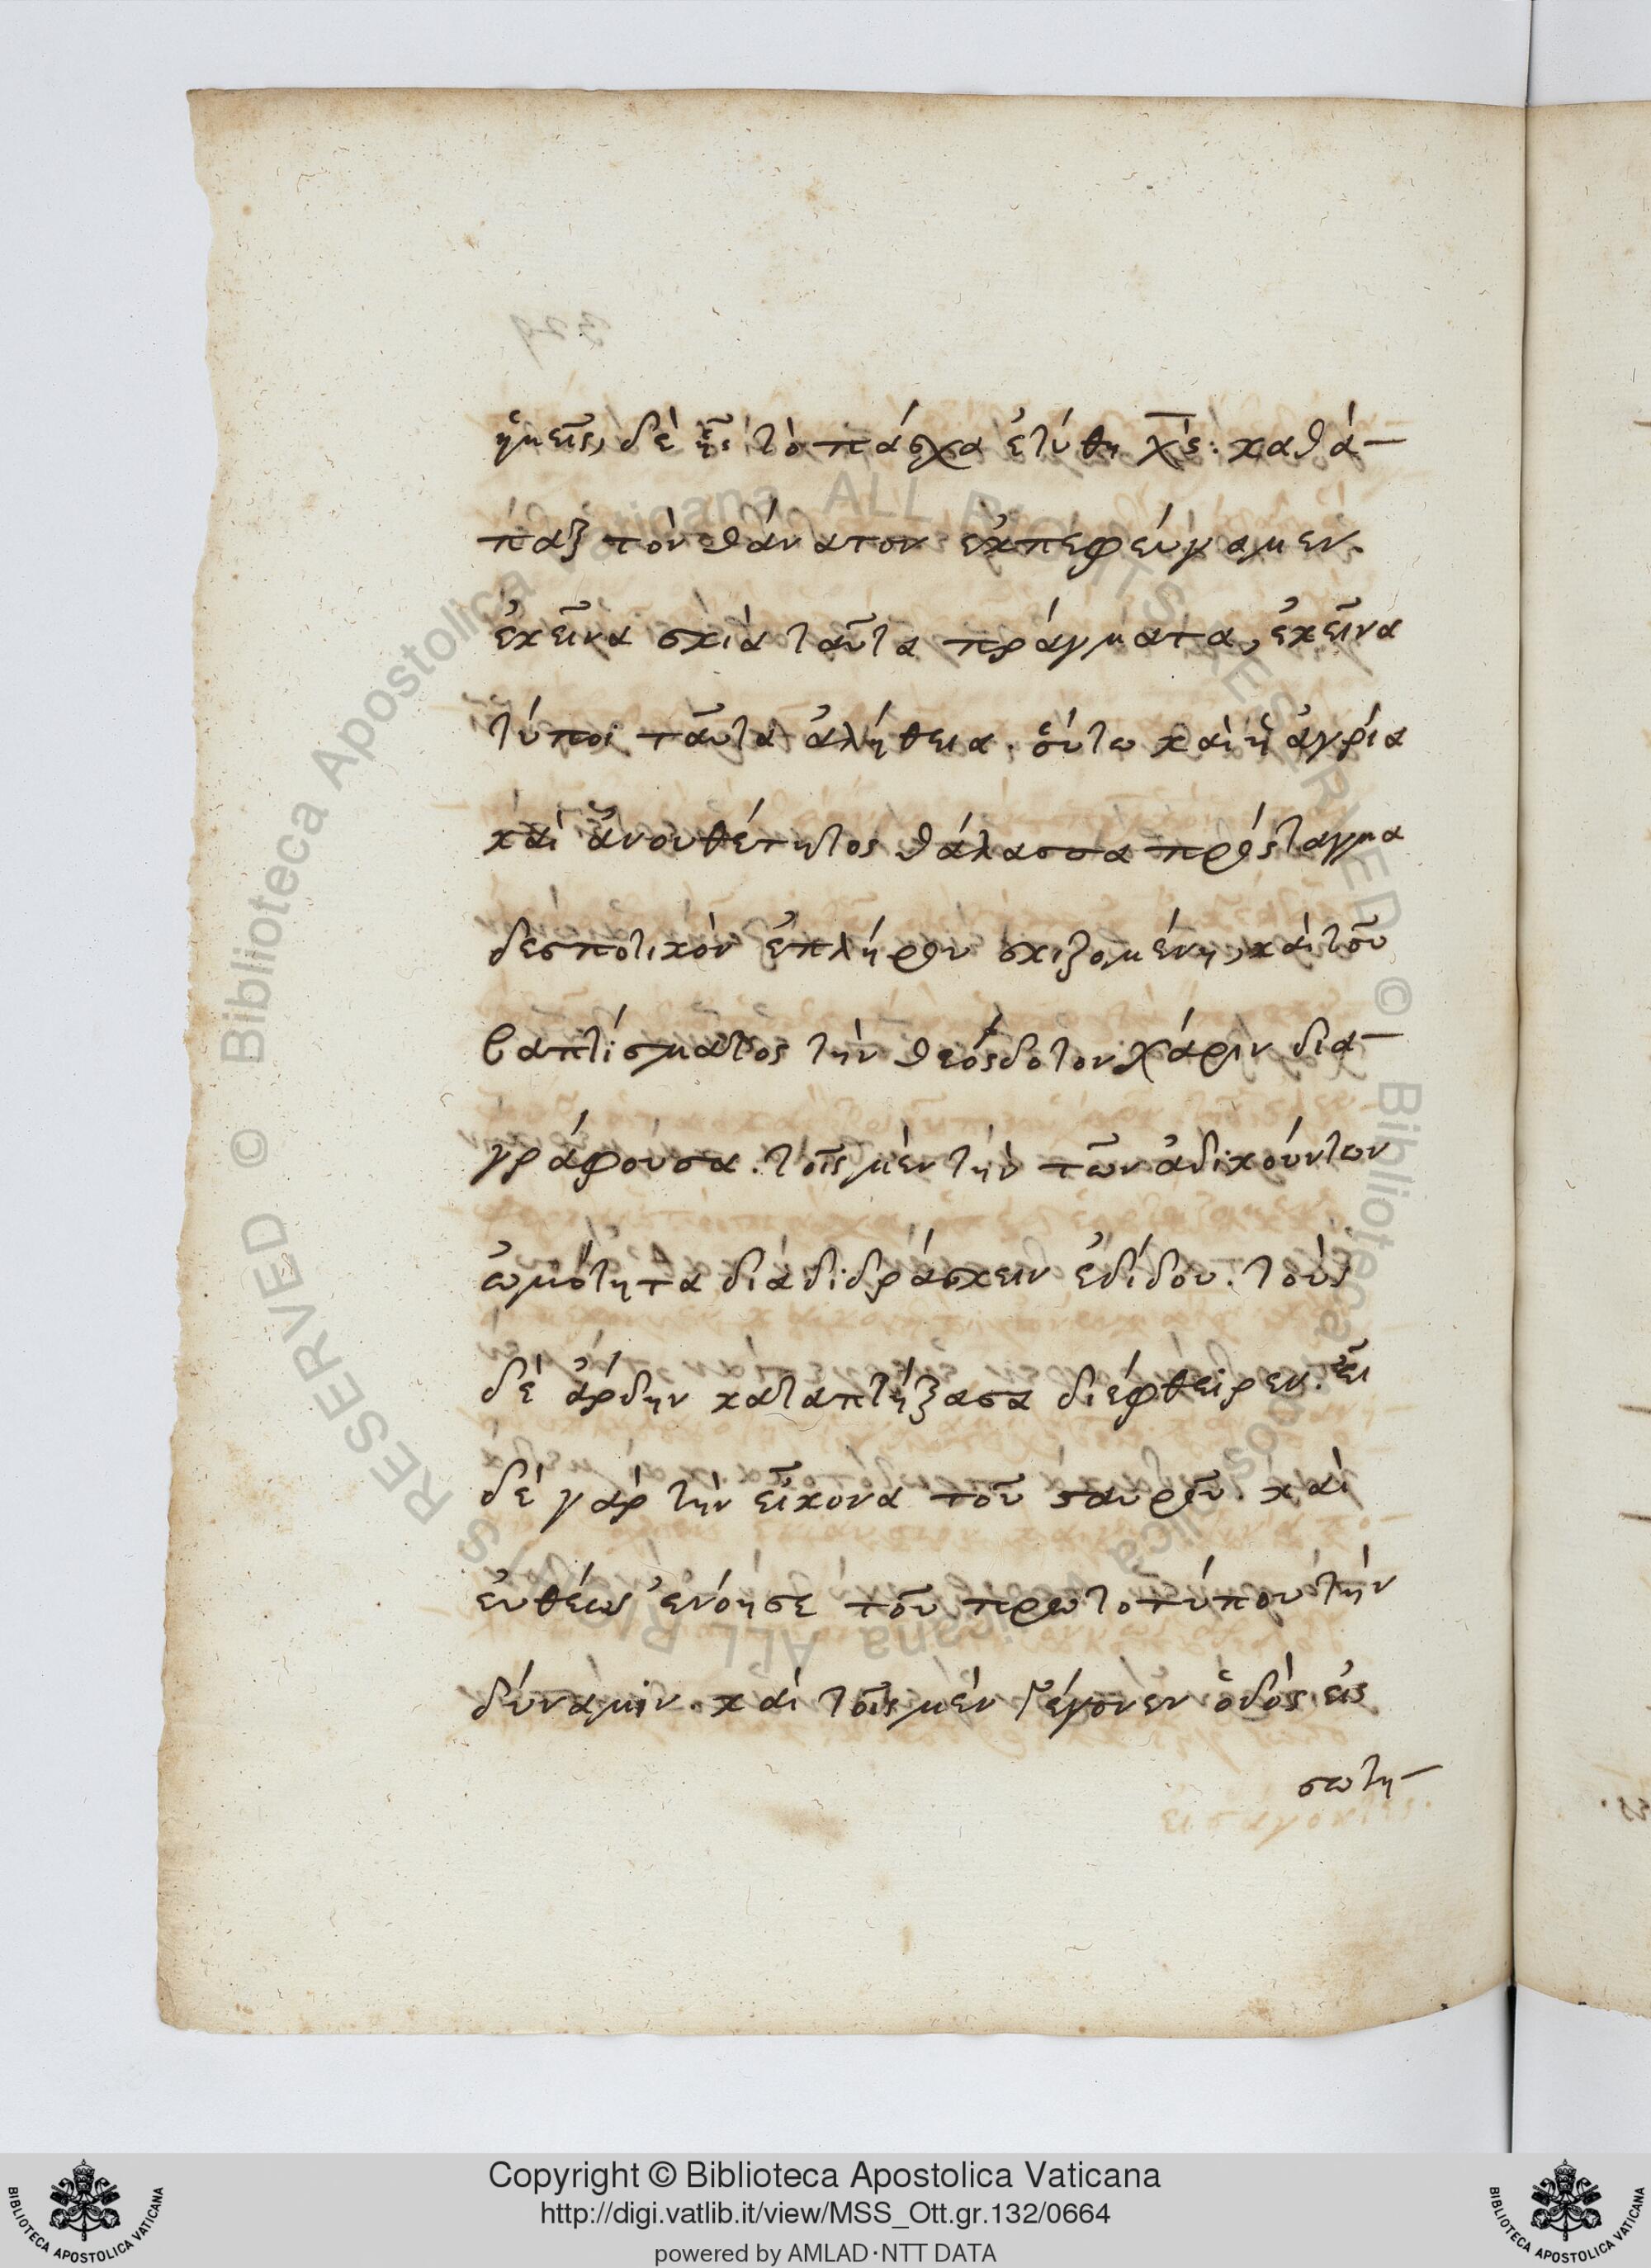 ἡμεῖς, δὲ ἧς τὸ πάσχα ἐτύθη χς: καθά-
παξ τὸν θάνατον ἐκπεφεύγαμεν.
ἐκεῖνα σκιὰ ταῦτα πράγματα, ἐκεῖνα
τύποι ταῦτα ἀλήθεια. οὕτω καὶ ἡ ἀγρία
καὶ ἀνουθέτητος θάλασσα πρόςταγμα
δεσποτικὸν ἐπλήρου σχιζομένη, καὶ τοῦ
βαπτίσματος τὴν θεόςδοτον χάριν δια-
γράφουσα. τοῖς μὲν τὴν τῶν ἀδικούντων
ὠμότητα διαδιδράσκειν ἐδίδου. τοὺς
δὲ ἄρδην καταπτήξασα διέφθειρεν. εἶ
δὲ γὰρ τὴν εἶκονα τοῦ σαυροῦ. καὶ
εὐθέως ἐνόησε τοῦ πρωτοτύπου τὴν
δύναμιν. καὶ τοῖς μὲν γέγονεν ὁδὸς εἰς
σωτη-
Copyright © Biblioteca Apostolica Vaticana
http://digi.vatlib.it/view/MSS_Ott.gr.132/0664
powered by AMLAD·NTT DATA
BIBLIOTECA APOSTOLICA VATICANA
BIBLIOTECA APOSTOLICA VATICANA
© Biblioteca Apostolica Vaticana ALL RIGHTS RESERVED
© Biblioteca Apostolica Vaticana ALL RIGHTS RESERVED